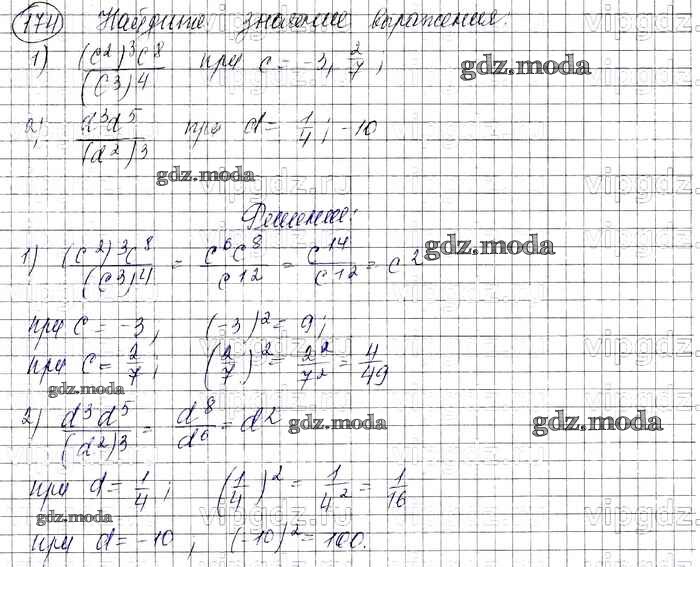 174 Найдите значение выражения:
1) (c²)³c⁸/(c³)⁴ при c = -3, 2/7; gdz.moda
2) d³d⁵/(d²)³ при d = 1/4; -10
gdz.moda
vipgdz.ru
Решение:
1) (c²)³c⁸/(c³)⁴ = c⁶c⁸/c¹² = c¹⁴/c¹² = c² gdz.moda
при c = -3, (-3)² = 9;
при c = 2/7; (2/7)² = 2²/7² = 4/49
gdz.moda
2) d³d⁵/(d²)³ = d⁸/d⁶ = d² gdz.moda gdz.moda
при d = 1/4; (1/4)² = 1/4² = 1/16
gdz.moda
vipgdz.ru
при d = -10, (-10)² = 100.